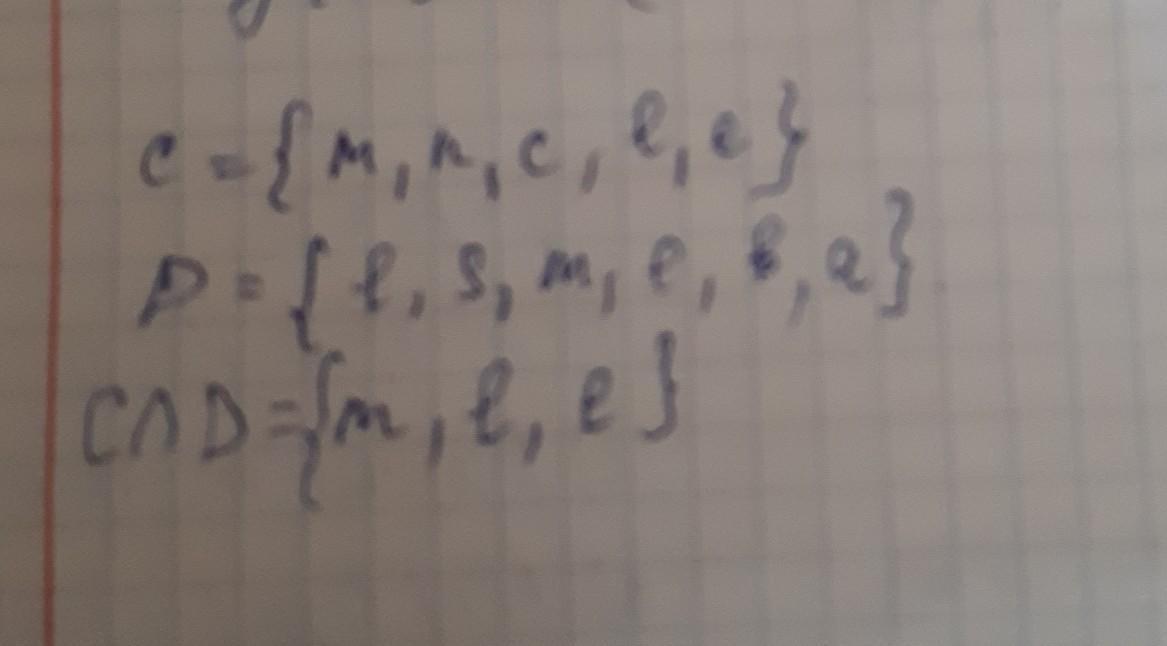 C = {m, n, c, l, e}
D = {l, s, m, e, b, a}
C∩D = {m, l, e}